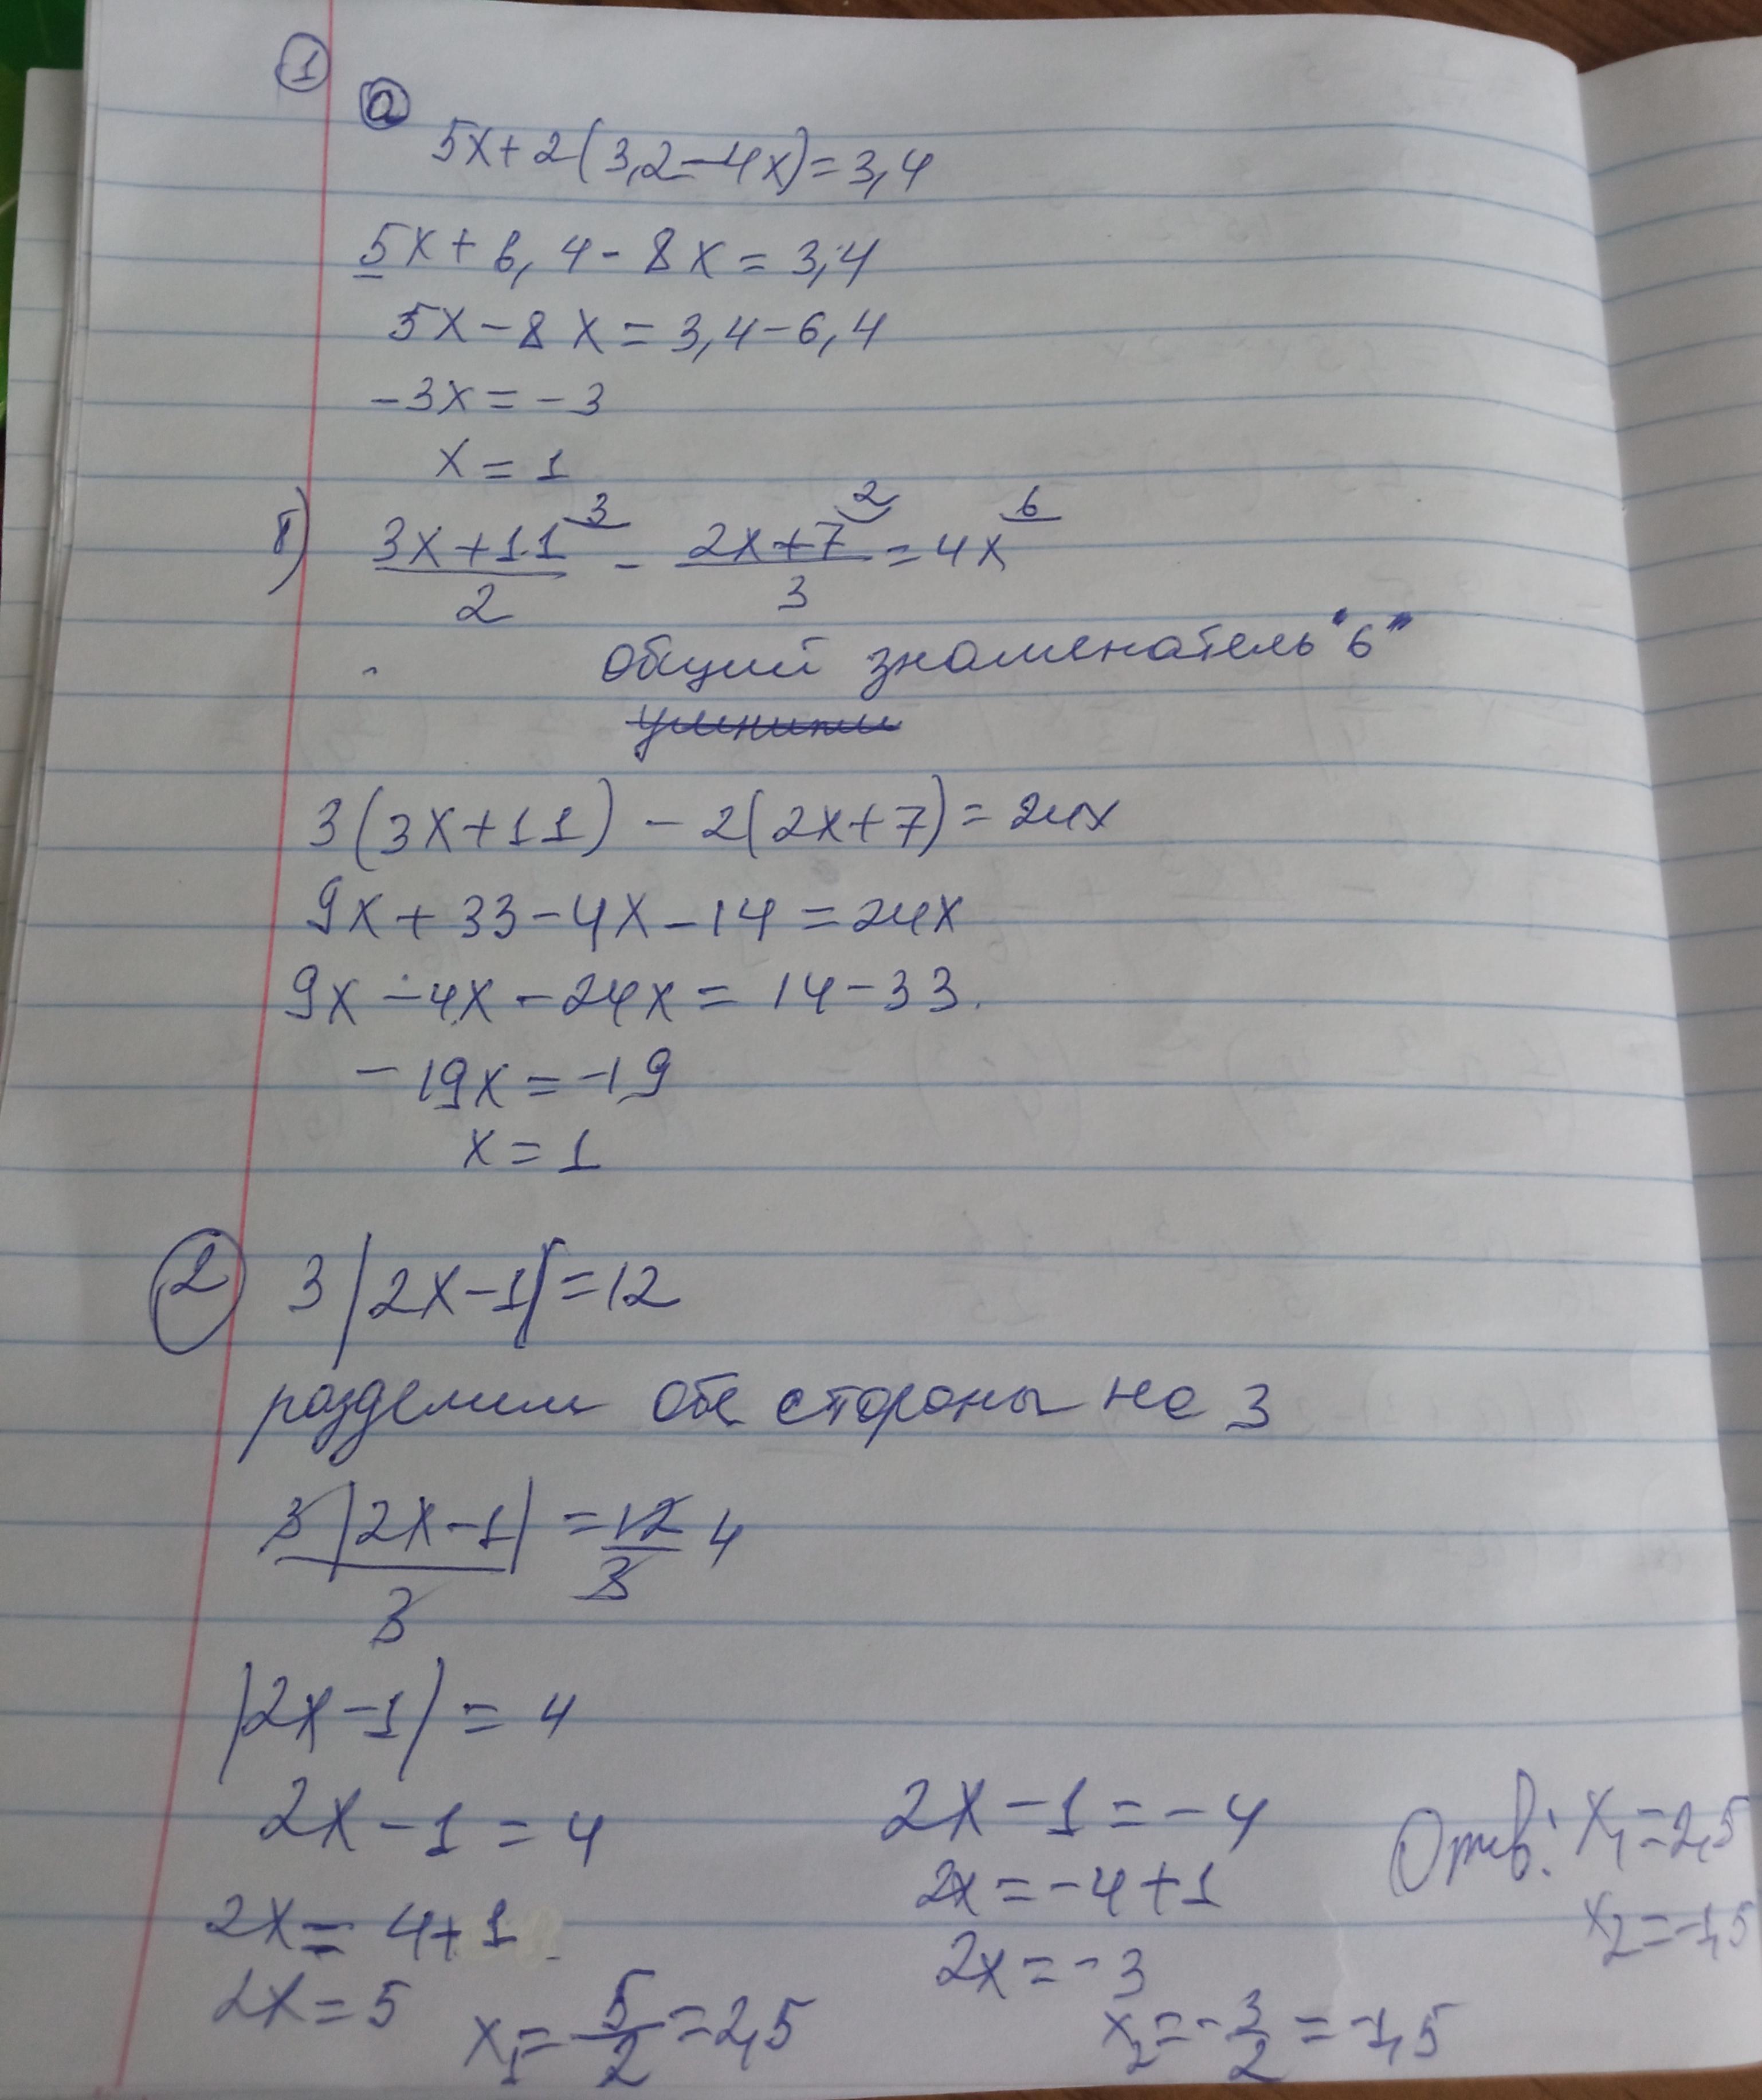 1
а
5x+2(3,2-4x)=3,4
5x+6,4-8x=3,4
5x-8x=3,4-6,4
-3x=-3
x=1
б) (3x+11)/2 3 - (2x+7)/3 2 = 4x 6
общий знаменатель "6"
3(3x+11)-2(2x+7)=24x
9x+33-4x-14=24x
9x-4x-24x=14-33.
-19x=-19
x=1
2 3|2x-1|=12
разделим обе стороны на 3
3|2x-1|/3 = 12/3 4
|2x-1|=4
2x-1=4
2x=4+1
2x=5
x₁=5/2=2,5
2x-1=-4
2x=-4+1
2x=-3
x₂=-3/2=-1,5
Отв: x₁=2,5
x₂=-1,5